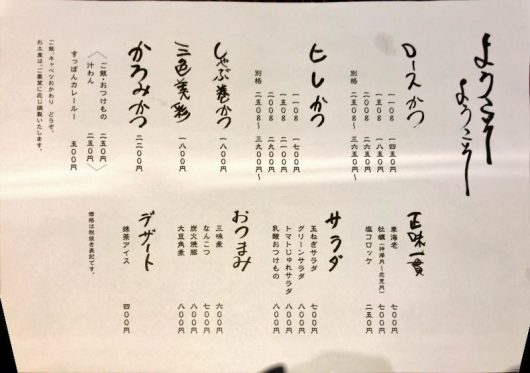 ようこそ
ようこそ
ロースかつ
一一〇g 一四五〇円
一五〇g 一八五〇円
二〇〇g 二六五〇円
別格 二五〇g〜 三六五〇円〜
ヒレかつ
一一〇g 一七〇〇円
一五〇g 二一〇〇円
二〇〇g 二九〇〇円
別格 二五〇g〜 三九〇〇円〜
しゃぶ巻かつ 一八〇〇円
三色美彩 一八〇〇円
かろみかつ 二二〇〇円
〈ご飯・おつけもの 二五〇円
汁わん 二五〇円〉
すっぽんカレールー 五〇〇円
ご飯、キャベツおかわり どうぞ。
お土産は、ご要望に応じ調製いたします。
正味一貫
車海老 七〇〇円
牡蠣 七〇〇円
塩コロッケ 二五〇円
サラダ
玉ねぎサラダ 七〇〇円
グリーンサラダ 八〇〇円
トマトじゅれサラダ 八〇〇円
乳酸おつけもの 八〇〇円
おつまみ
三味煮 六〇〇円
なんこつ 七〇〇円
炭火焼豚 八〇〇円
大豆角煮 八〇〇円
デザート
抹茶アイス 四〇〇円
価格は税抜き表記です。